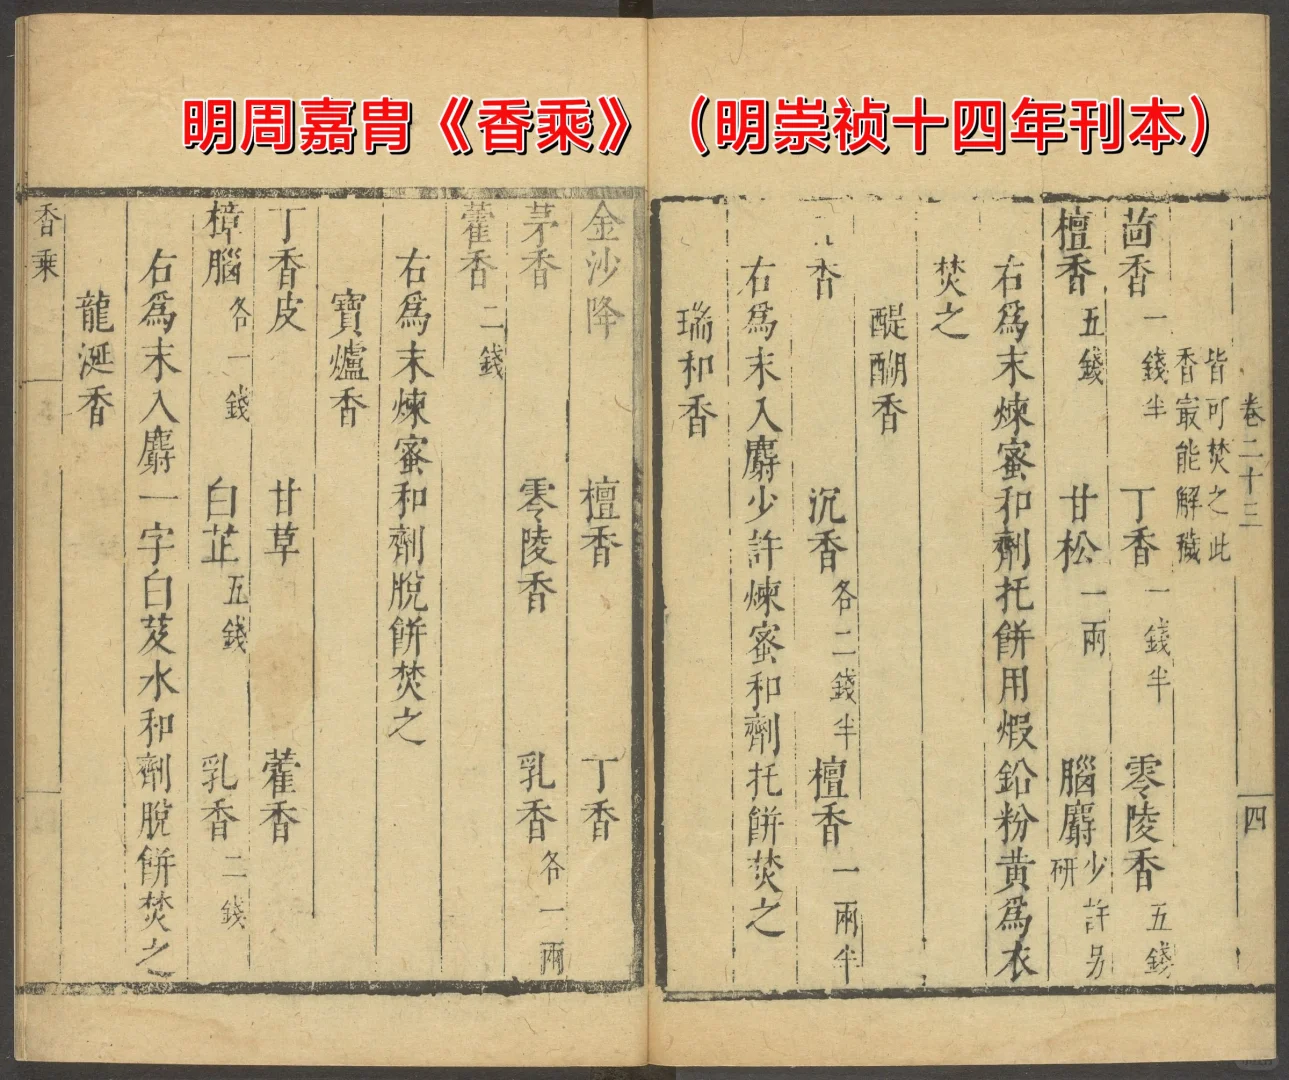 明周嘉胄《香乘》（明崇祯十四年刊本）
卷二十三 四
皆可焚之此
香㝡能解穢
茴香一錢半 丁香一錢半 零陵香五錢
檀香五錢 甘松一兩 腦麝少許另研
右爲末煉蜜和劑托餅用煆鉛粉黄爲衣
焚之
醍醐香
香 沉香各二錢半 檀香一兩半
右爲末入麝少許煉蜜和劑托餅焚之
瑞和香
金沙降 檀香 丁香
茅香 零陵香 乳香各一兩
藿香二錢
右爲末煉蜜和劑脫餅焚之
寶爐香
丁香皮 甘草 藿香
樟腦各一錢 白芷五錢 乳香二錢
右爲末入麝一字白芨水和劑脫餅焚之
龍涎香
香乘